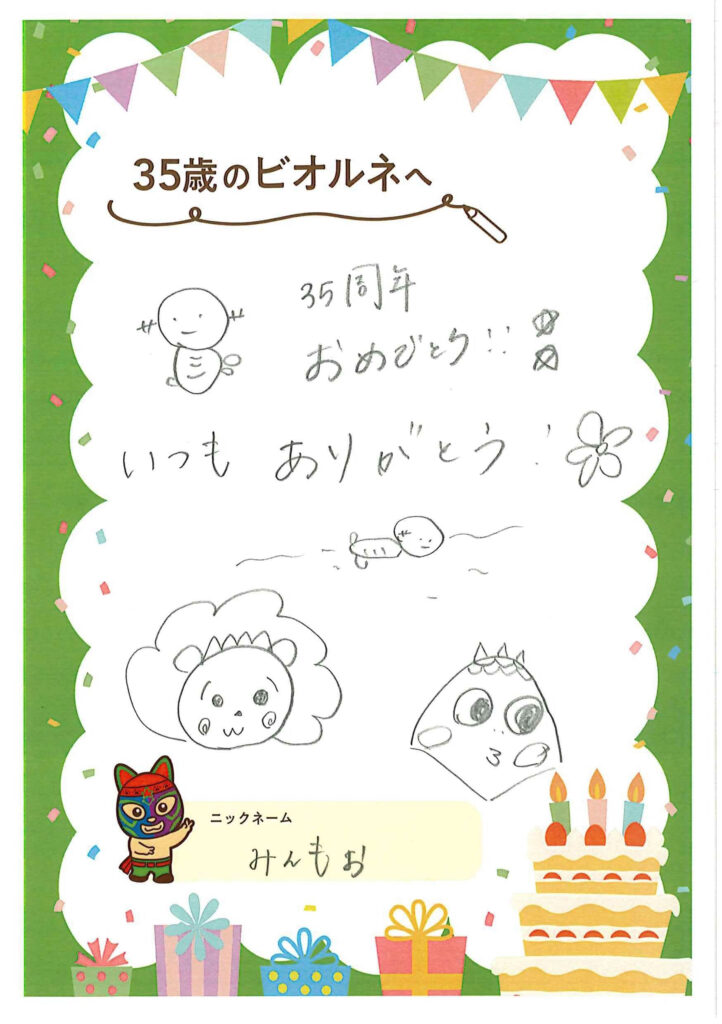 35歳のビオルネへ
35周年
おめでとう!!
いつも ありがとう!
ニックネーム
みんもお